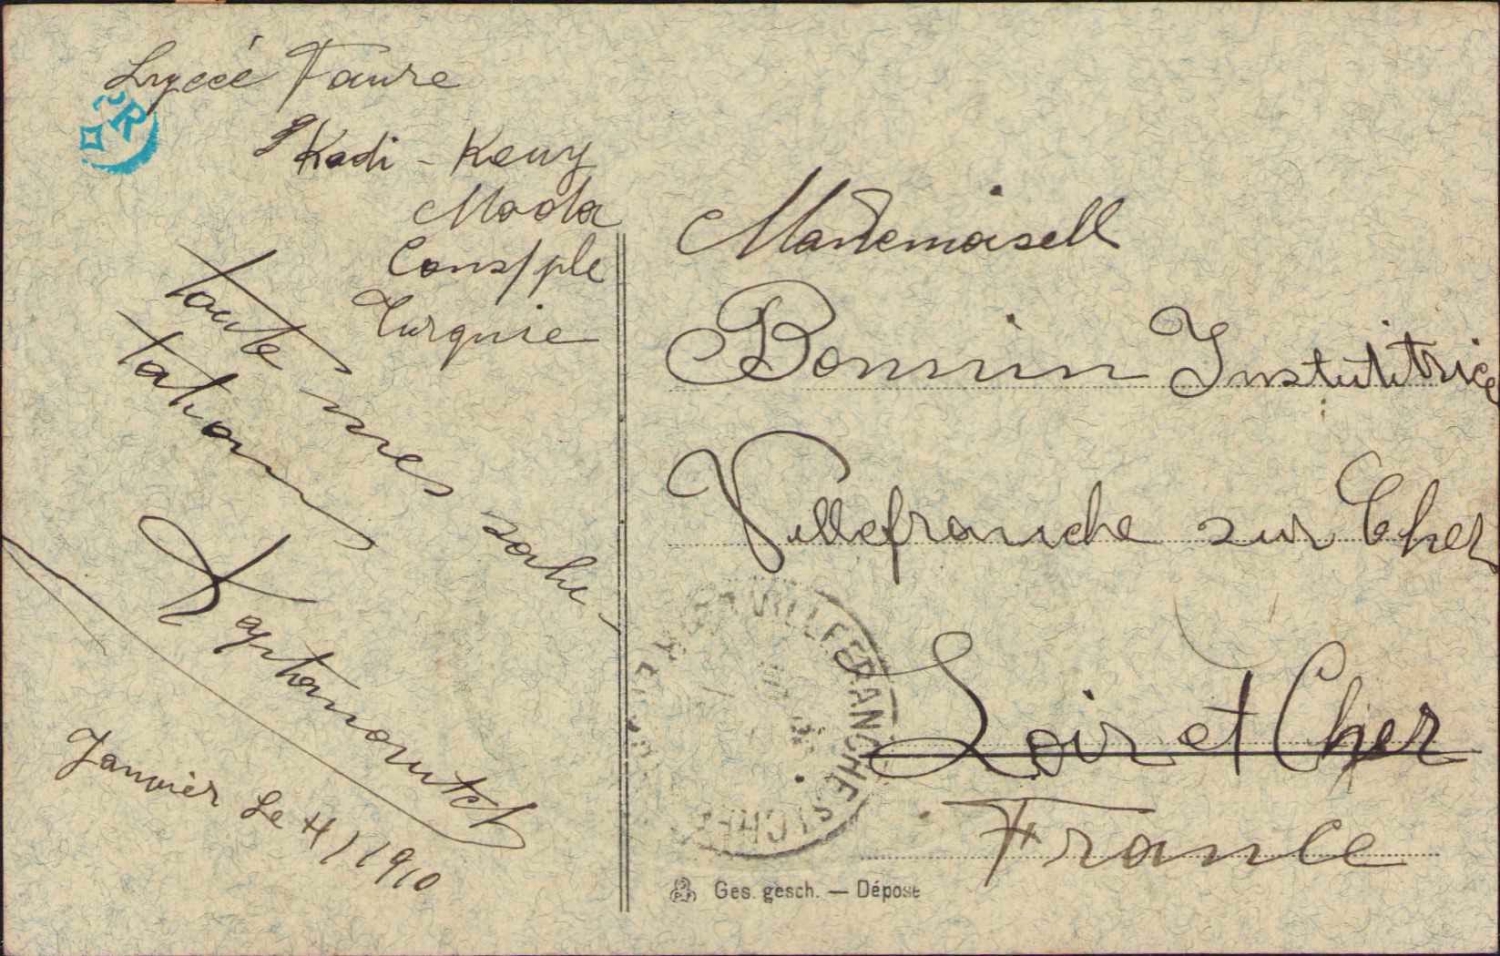 Lyceé Faure
Kadi-Keuy
Moda
Cons/ple
Turquie
toute mes souhe-
tation
Janvier Le 4/1910
Mademoisell
Bonnin Institutrice
Villefranche sur Cher
Loir et Cher
France
VILLEFRANCHE S/CHER
Ges. gesch. — Déposé